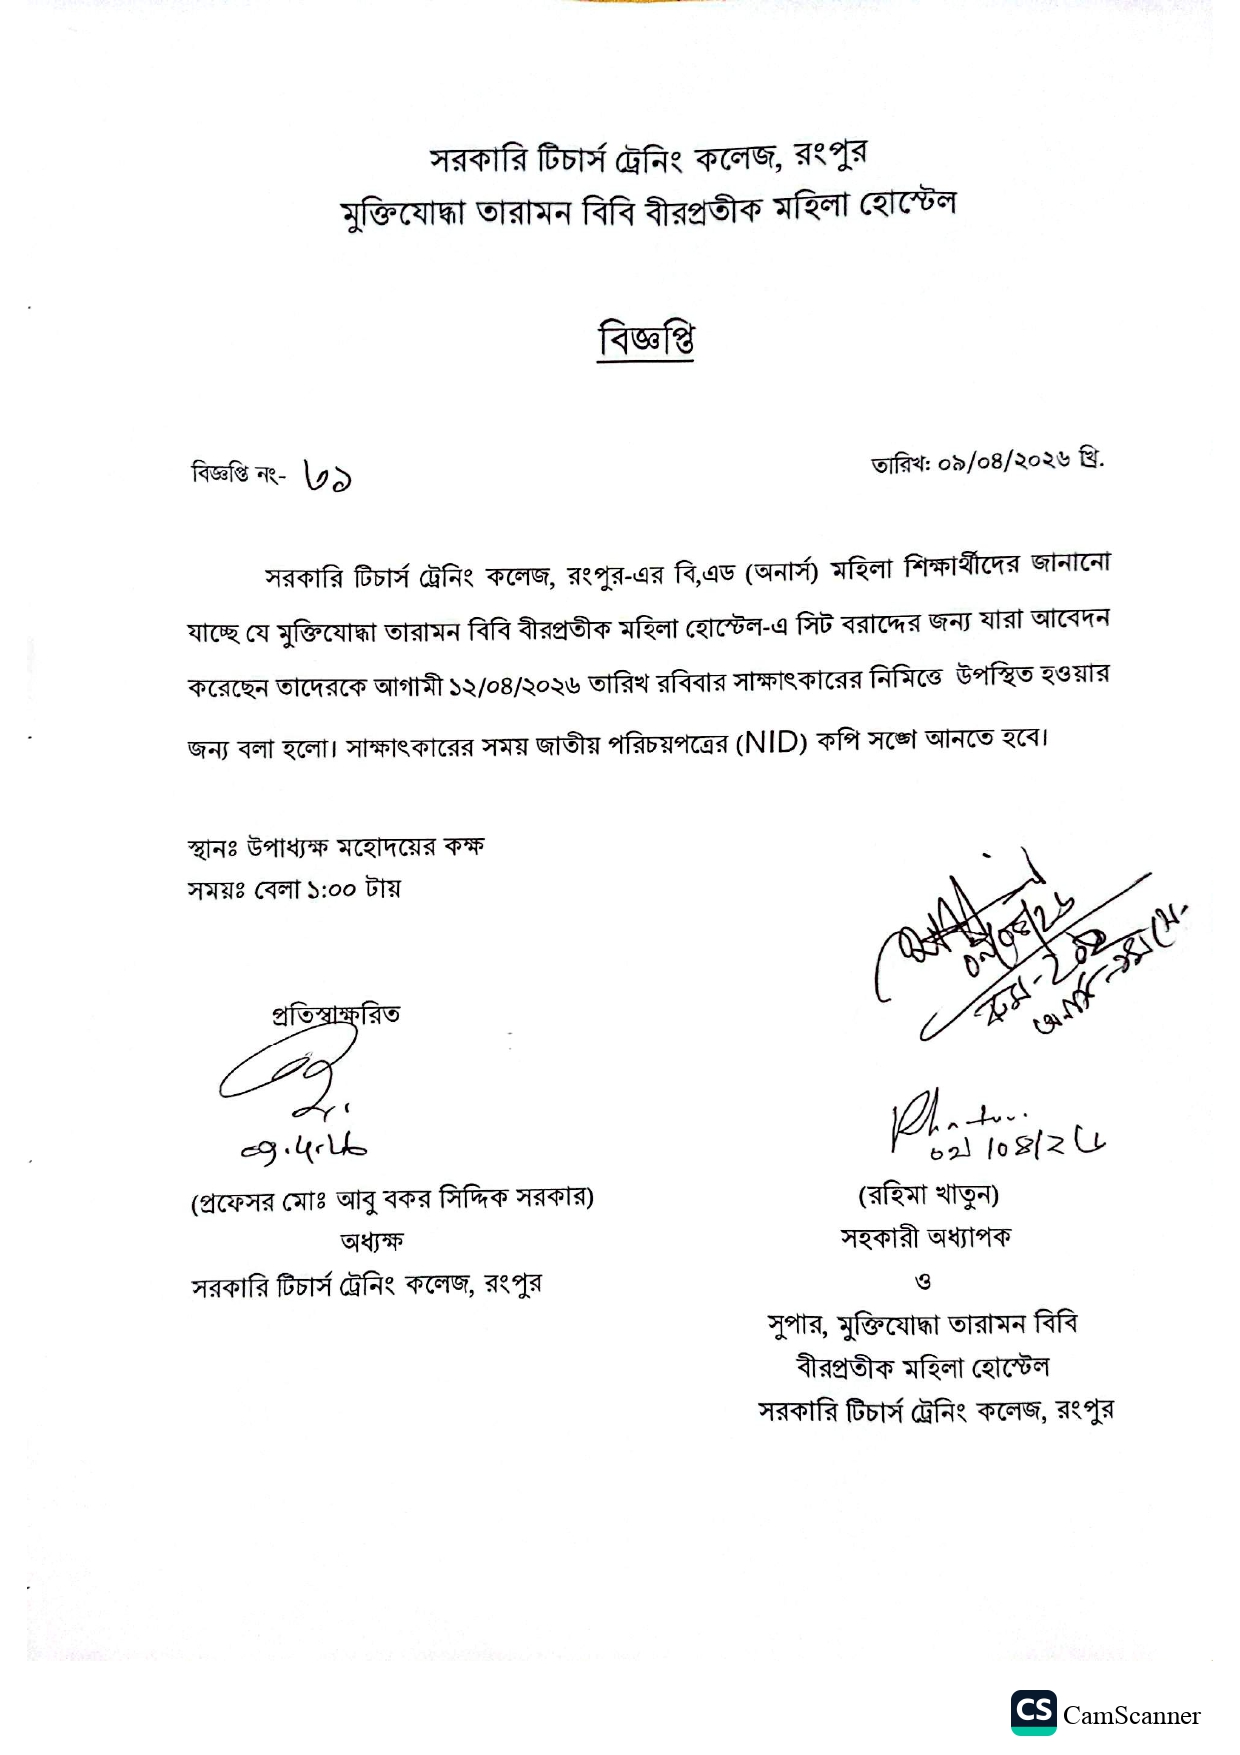 সরকারি টিচার্স ট্রেনিং কলেজ, রংপুর
মুক্তিযোদ্ধা তারামন বিবি বীরপ্রতীক মহিলা হোস্টেল
বিজ্ঞপ্তি
বিজ্ঞপ্তি নং- ৩১
তারিখ: ০৯/০৪/২০২৬ খ্রি.
সরকারি টিচার্স ট্রেনিং কলেজ, রংপুর-এর বি,এড (অনার্স) মহিলা শিক্ষার্থীদের জানানো
যাচ্ছে যে মুক্তিযোদ্ধা তারামন বিবি বীরপ্রতীক মহিলা হোস্টেল-এ সিট বরাদ্দের জন্য যারা আবেদন
করেছেন তাদেরকে আগামী ১২/০৪/২০২৬ তারিখ রবিবার সাক্ষাৎকারের নিমিত্তে উপস্থিত হওয়ার
জন্য বলা হলো। সাক্ষাৎকারের সময় জাতীয় পরিচয়পত্রের (NID) কপি সঙ্গে আনতে হবে।
স্থানঃ উপাধ্যক্ষ মহোদয়ের কক্ষ
সময়ঃ বেলা ১:০০ টায়
প্রতিস্বাক্ষরিত
(প্রফেসর মোঃ আবু বকর সিদ্দিক সরকার)
অধ্যক্ষ
সরকারি টিচার্স ট্রেনিং কলেজ, রংপুর
(রহিমা খাতুন)
সহকারী অধ্যাপক
ও
সুপার, মুক্তিযোদ্ধা তারামন বিবি
বীরপ্রতীক মহিলা হোস্টেল
সরকারি টিচার্স ট্রেনিং কলেজ, রংপুর
CS CamScanner